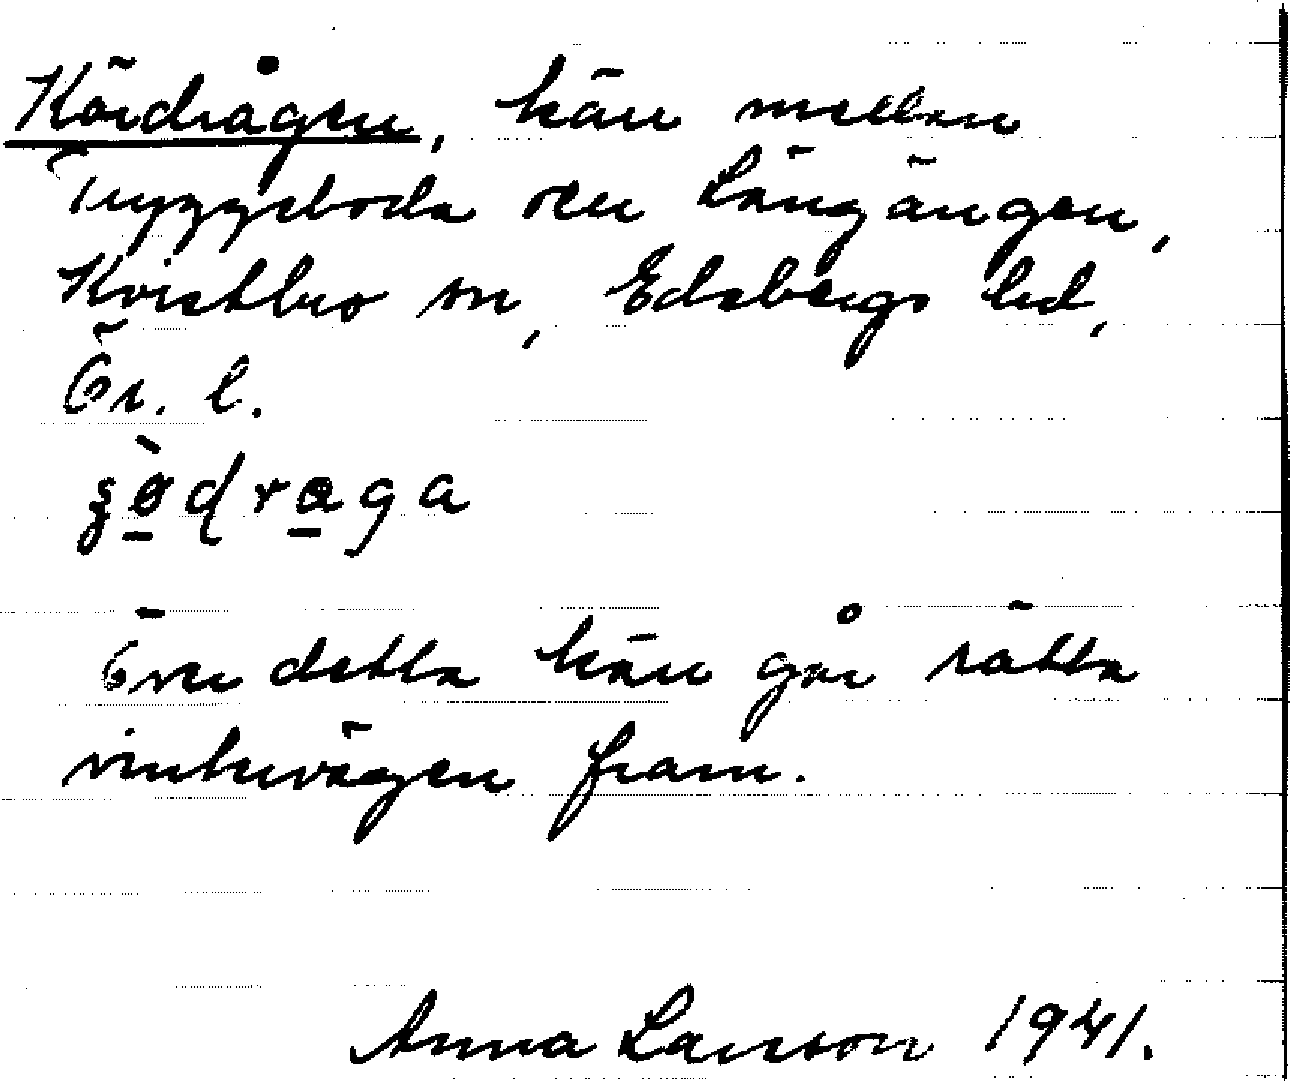 Kördrågen, kärr mellan
Tryggeboda och Långängen,
Kvistbro sn, Edsbergs hd,
Ör. l.
över detta kärr går rätta
vintervägen fram.
Anna Larsson 1941.